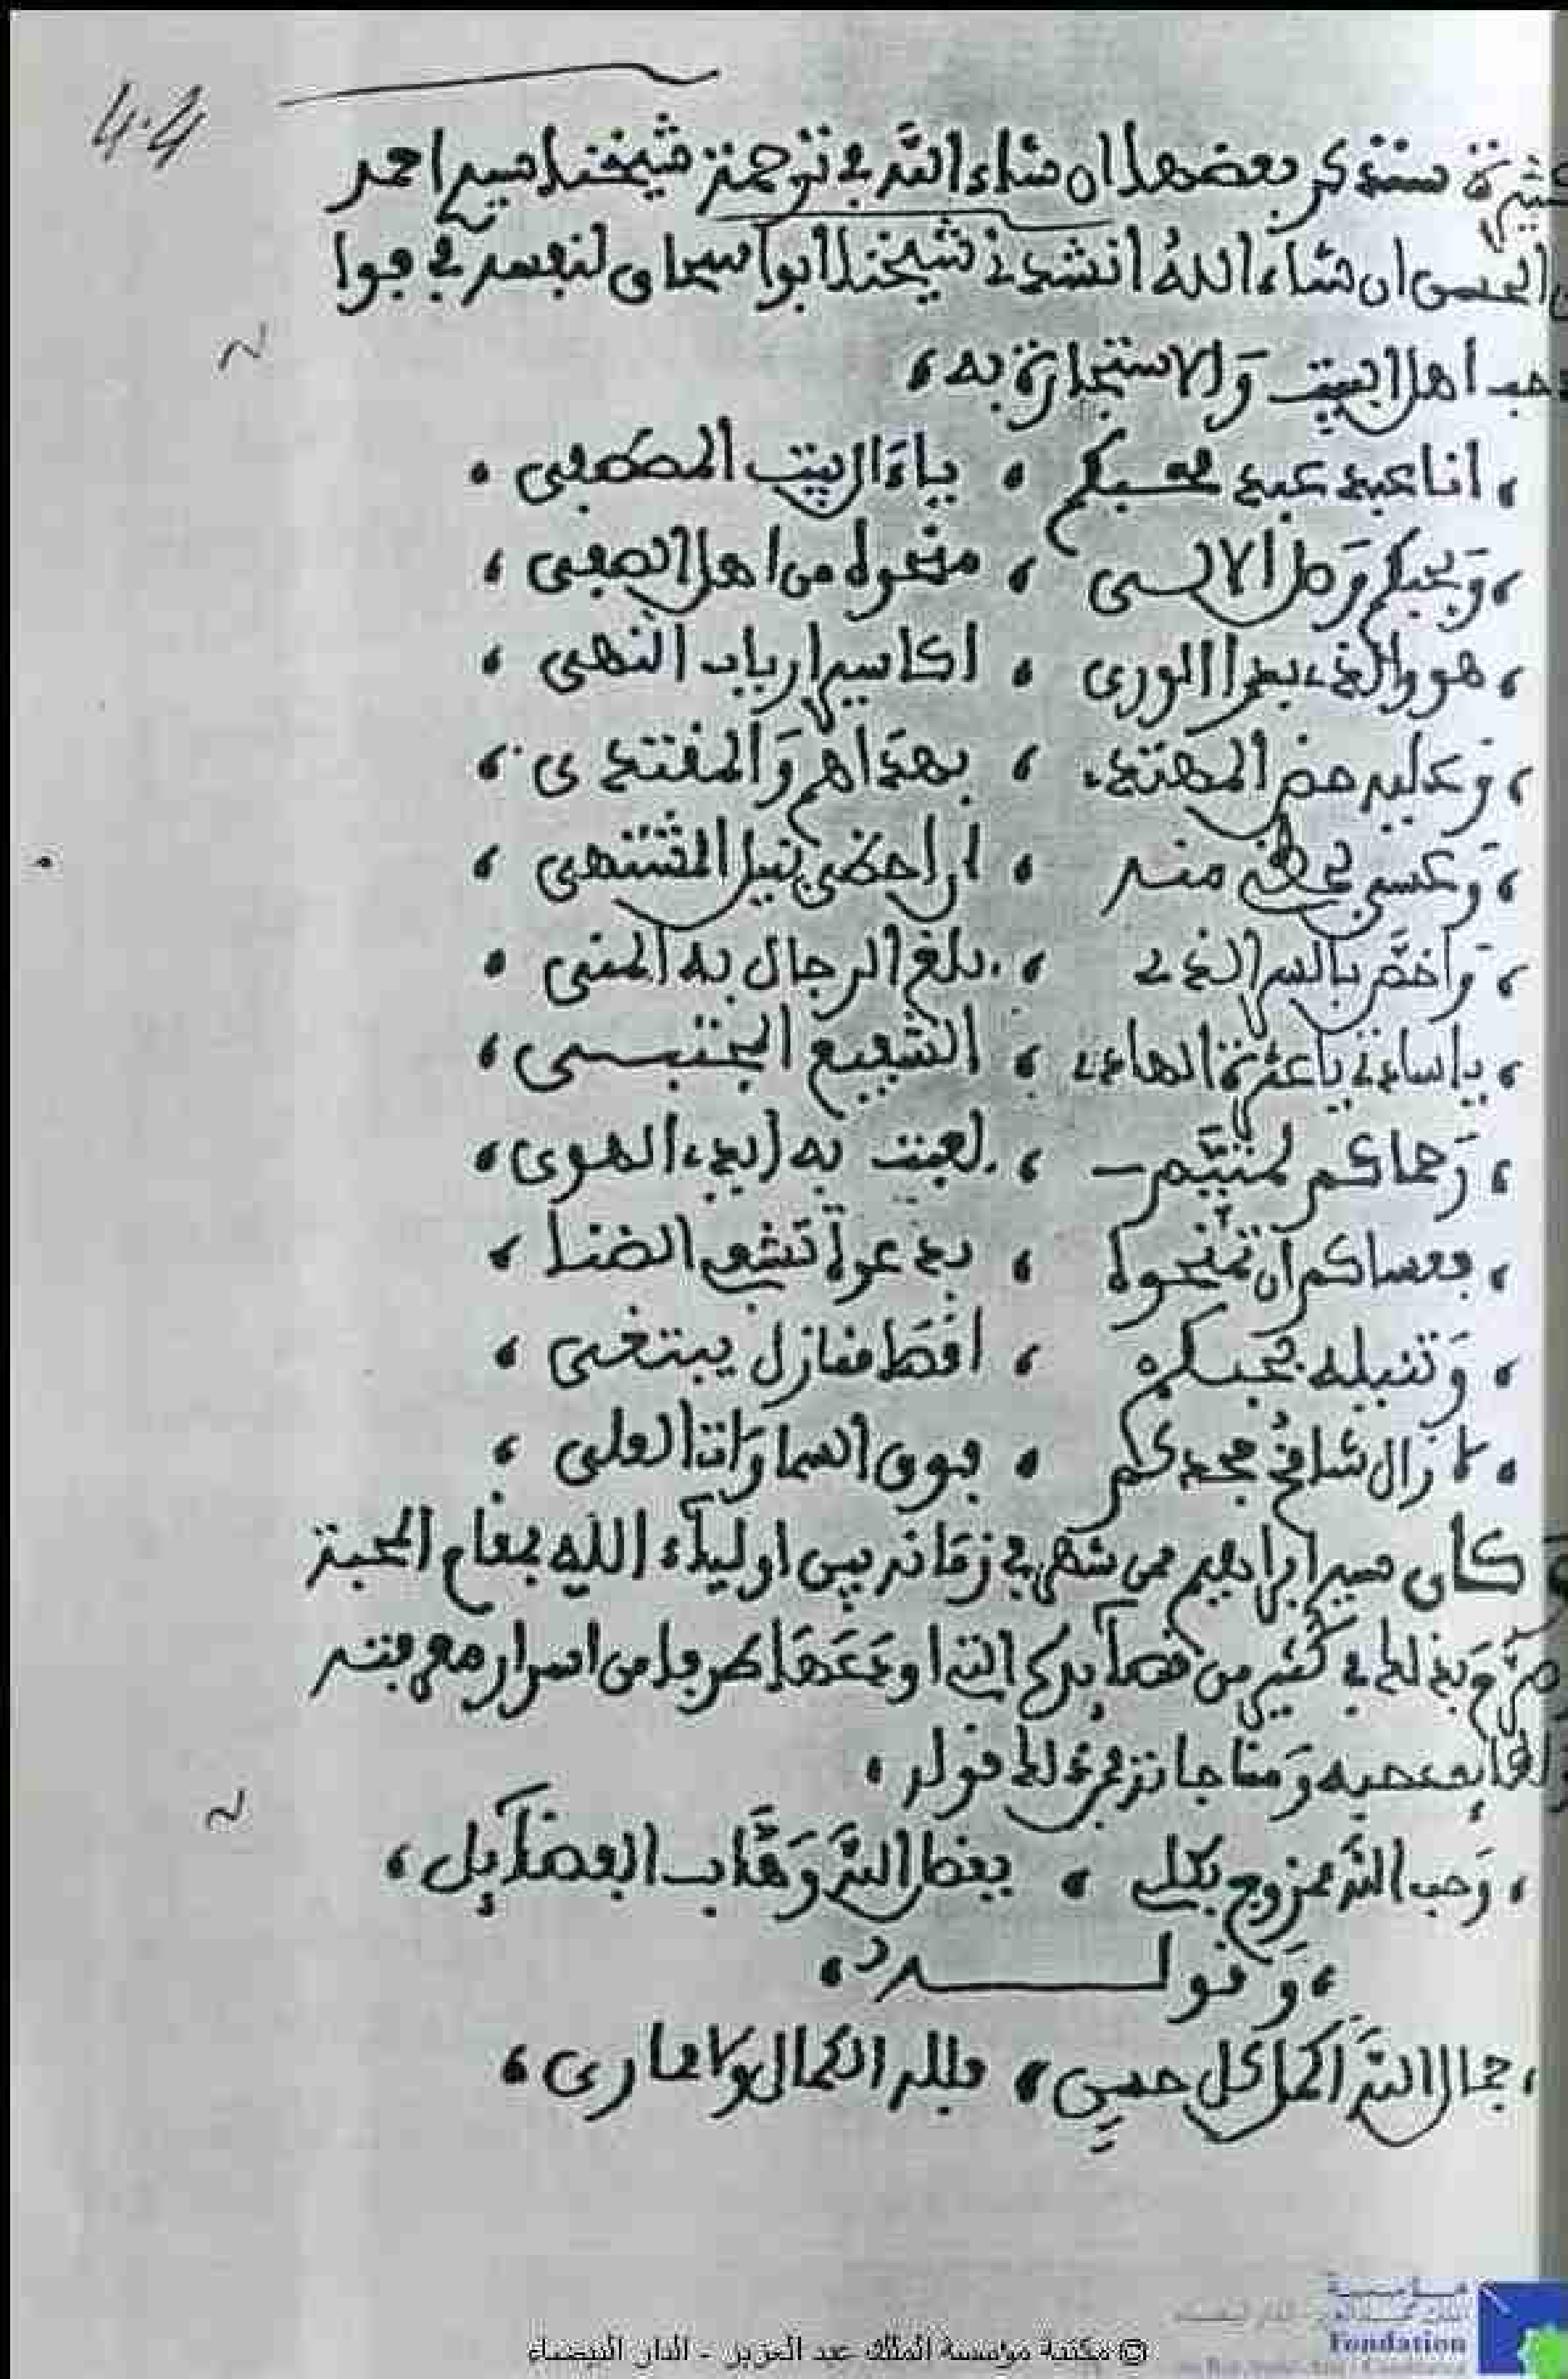 4.4
كثيرة ستذكر بعضها ان شاء الله في ترجمة شيخنا سيدي احمد
الحسن ان شاء الله انشدني شيخنا ابو اسحاق لنفسه في
اهل البيت والاستجارة به
انا عبد عبد محبكم ، ياءال بيت المصطفى
وبحبكم وصل الالى ، منحوه من اهل الصفى
هو والذي بدا الورى ، اكاسير ارباب النهى
وعليه حض المهتدي ، بهداهم والمقتدى
وعسى بحظي منه ، ان احظى بنيل المشتهى
واخص بالسر الذي ، بلغ الرجال به المنى
يا سادتي يا عترة الهادي ، الشفيع المجتبى
رحماكم لمتيم ، لعبت به ايدي الهوى
فعساكم ان تمنحوه ، بدعوة تشفي الضنا
وتنيله بحبكم ، اقطا منازل يبتغى
لا زال شامخ مجدكم ، فوق السماوات العلى
كان سيدي ابراهيم ممن شهر في زمانه بين اولياء الله بمقام المحبة
وبذلك في كثير من قصائده التي اودعها طرفا من اسرار معرفته
ومناجاته فمن ذلك قوله
وحب الله ممزوج بكلي ، بفضل الله وهاب الفضايل
وقوله
جمال الله اكمل كل حسن ، فلله الكمال ولا اماري
مؤسسة
Fondation
© مكتبة مؤسسة الملك عبد العزيز - الدار البيضاء